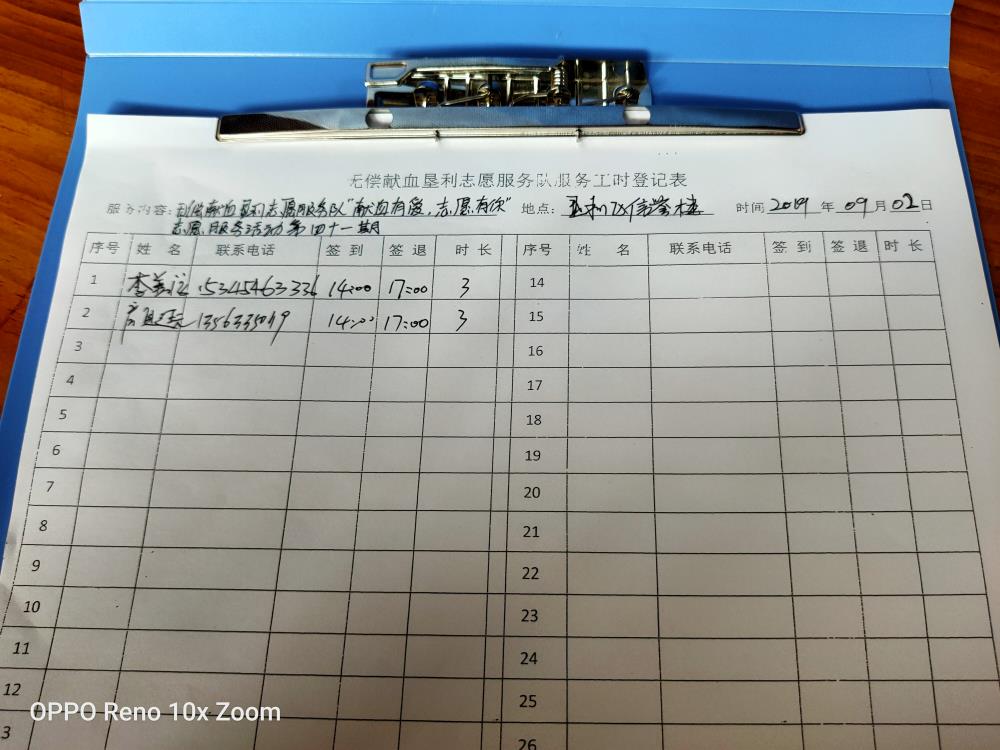 无偿献血垦利志愿服务队服务工时登记表
服务内容: 无偿献血垦利志愿服务队“献血有爱,志愿有你” 地点: 时间 2019 年 09 月 02 日
志愿服务活动第四十一期
序号 姓 名 联系电话 签 到 签 退 时 长 序号 姓 名 联系电话 签 到 签 退 时 长
1 15345463336 14:00 17:00 3 14
2 14:00 17:00 3 15
3 16
4 17
5 18
6 19
7 20
8 21
9 22
10 23
11 24
12 25
3 26
OPPO Reno 10x Zoom